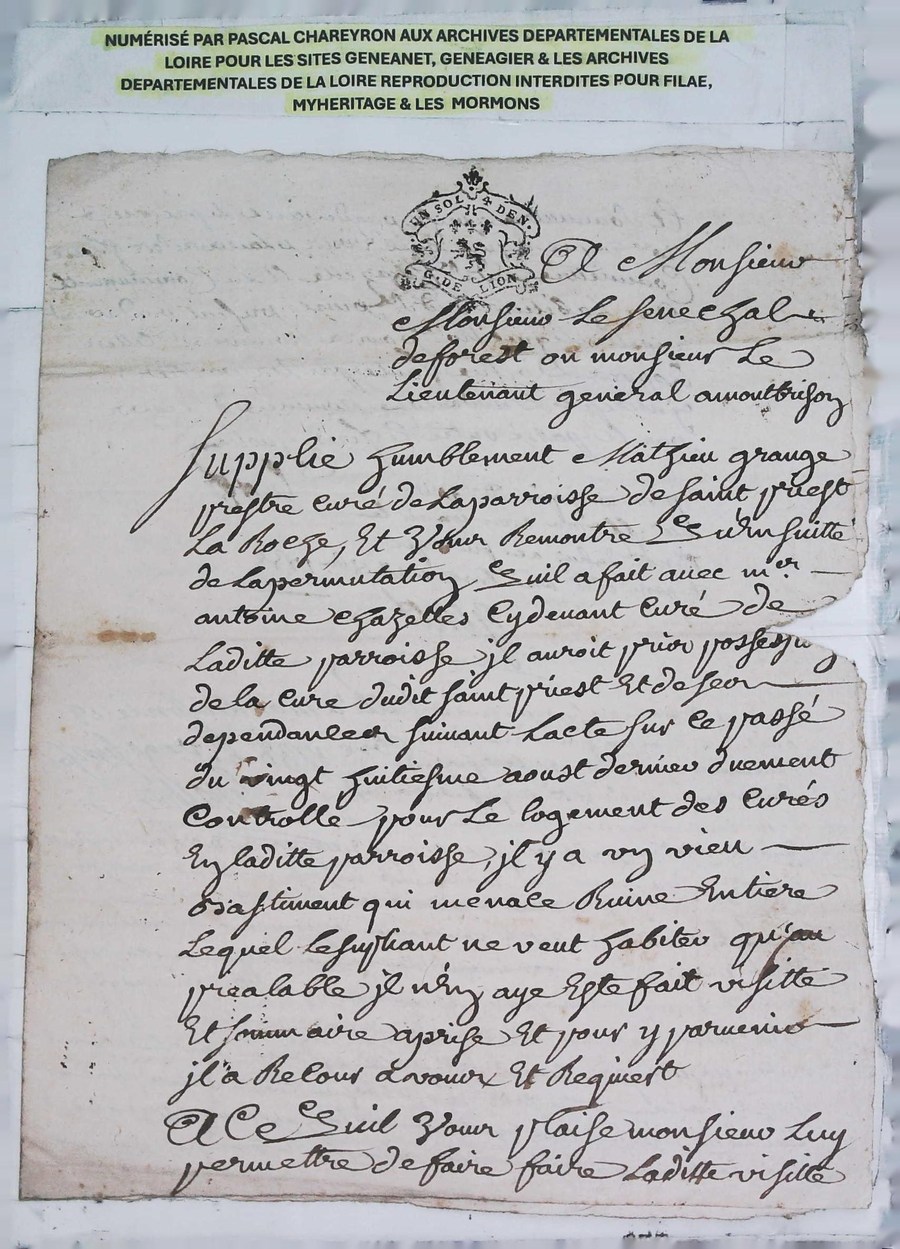 NUMÉRISÉ PAR PASCAL CHAREYRON AUX ARCHIVES DEPARTEMENTALES DE LA
LOIRE POUR LES SITES GENEANET, GENEAGIER & LES ARCHIVES
DEPARTEMENTALES DE LA LOIRE REPRODUCTION INTERDITES POUR FILAE,
MYHERITAGE & LES MORMONS
UN SOL 4 DEN.
G. DE LION
A Monsieur
Monsieur Le Senechal
deforest ou monsieur Le
Lieutenant general amontbrison
Supplie humblement Mathieu grange
prestre curé de Laparroisse de saint priest
La Roche, Et Vous Remontre quen suitte
de Lapermutation quil a fait avec mer
antoine chazelles Cydevant Curé de
Laditte parroisse jl auroit pris
de la Cure dudit saint priest Et de ses
dependances suivant Lacte sur ce passé
du vingt huitiesme aoust dernier duement
Controlle pour Le logement des Curés
En laditte parroisse, jl y a vn vieu
bastiment qui menace Ruine Entiere
Lequel Lesupliant ne veut habiter qu'au
prealable jl n'en aye Este fait visitte
Et sommaire aprise Et pour y parvenir
jl a Recours a vous Et Requiert
A Ce quil Vous plaise monsieur Luy
permettre de faire faire Laditte visitte